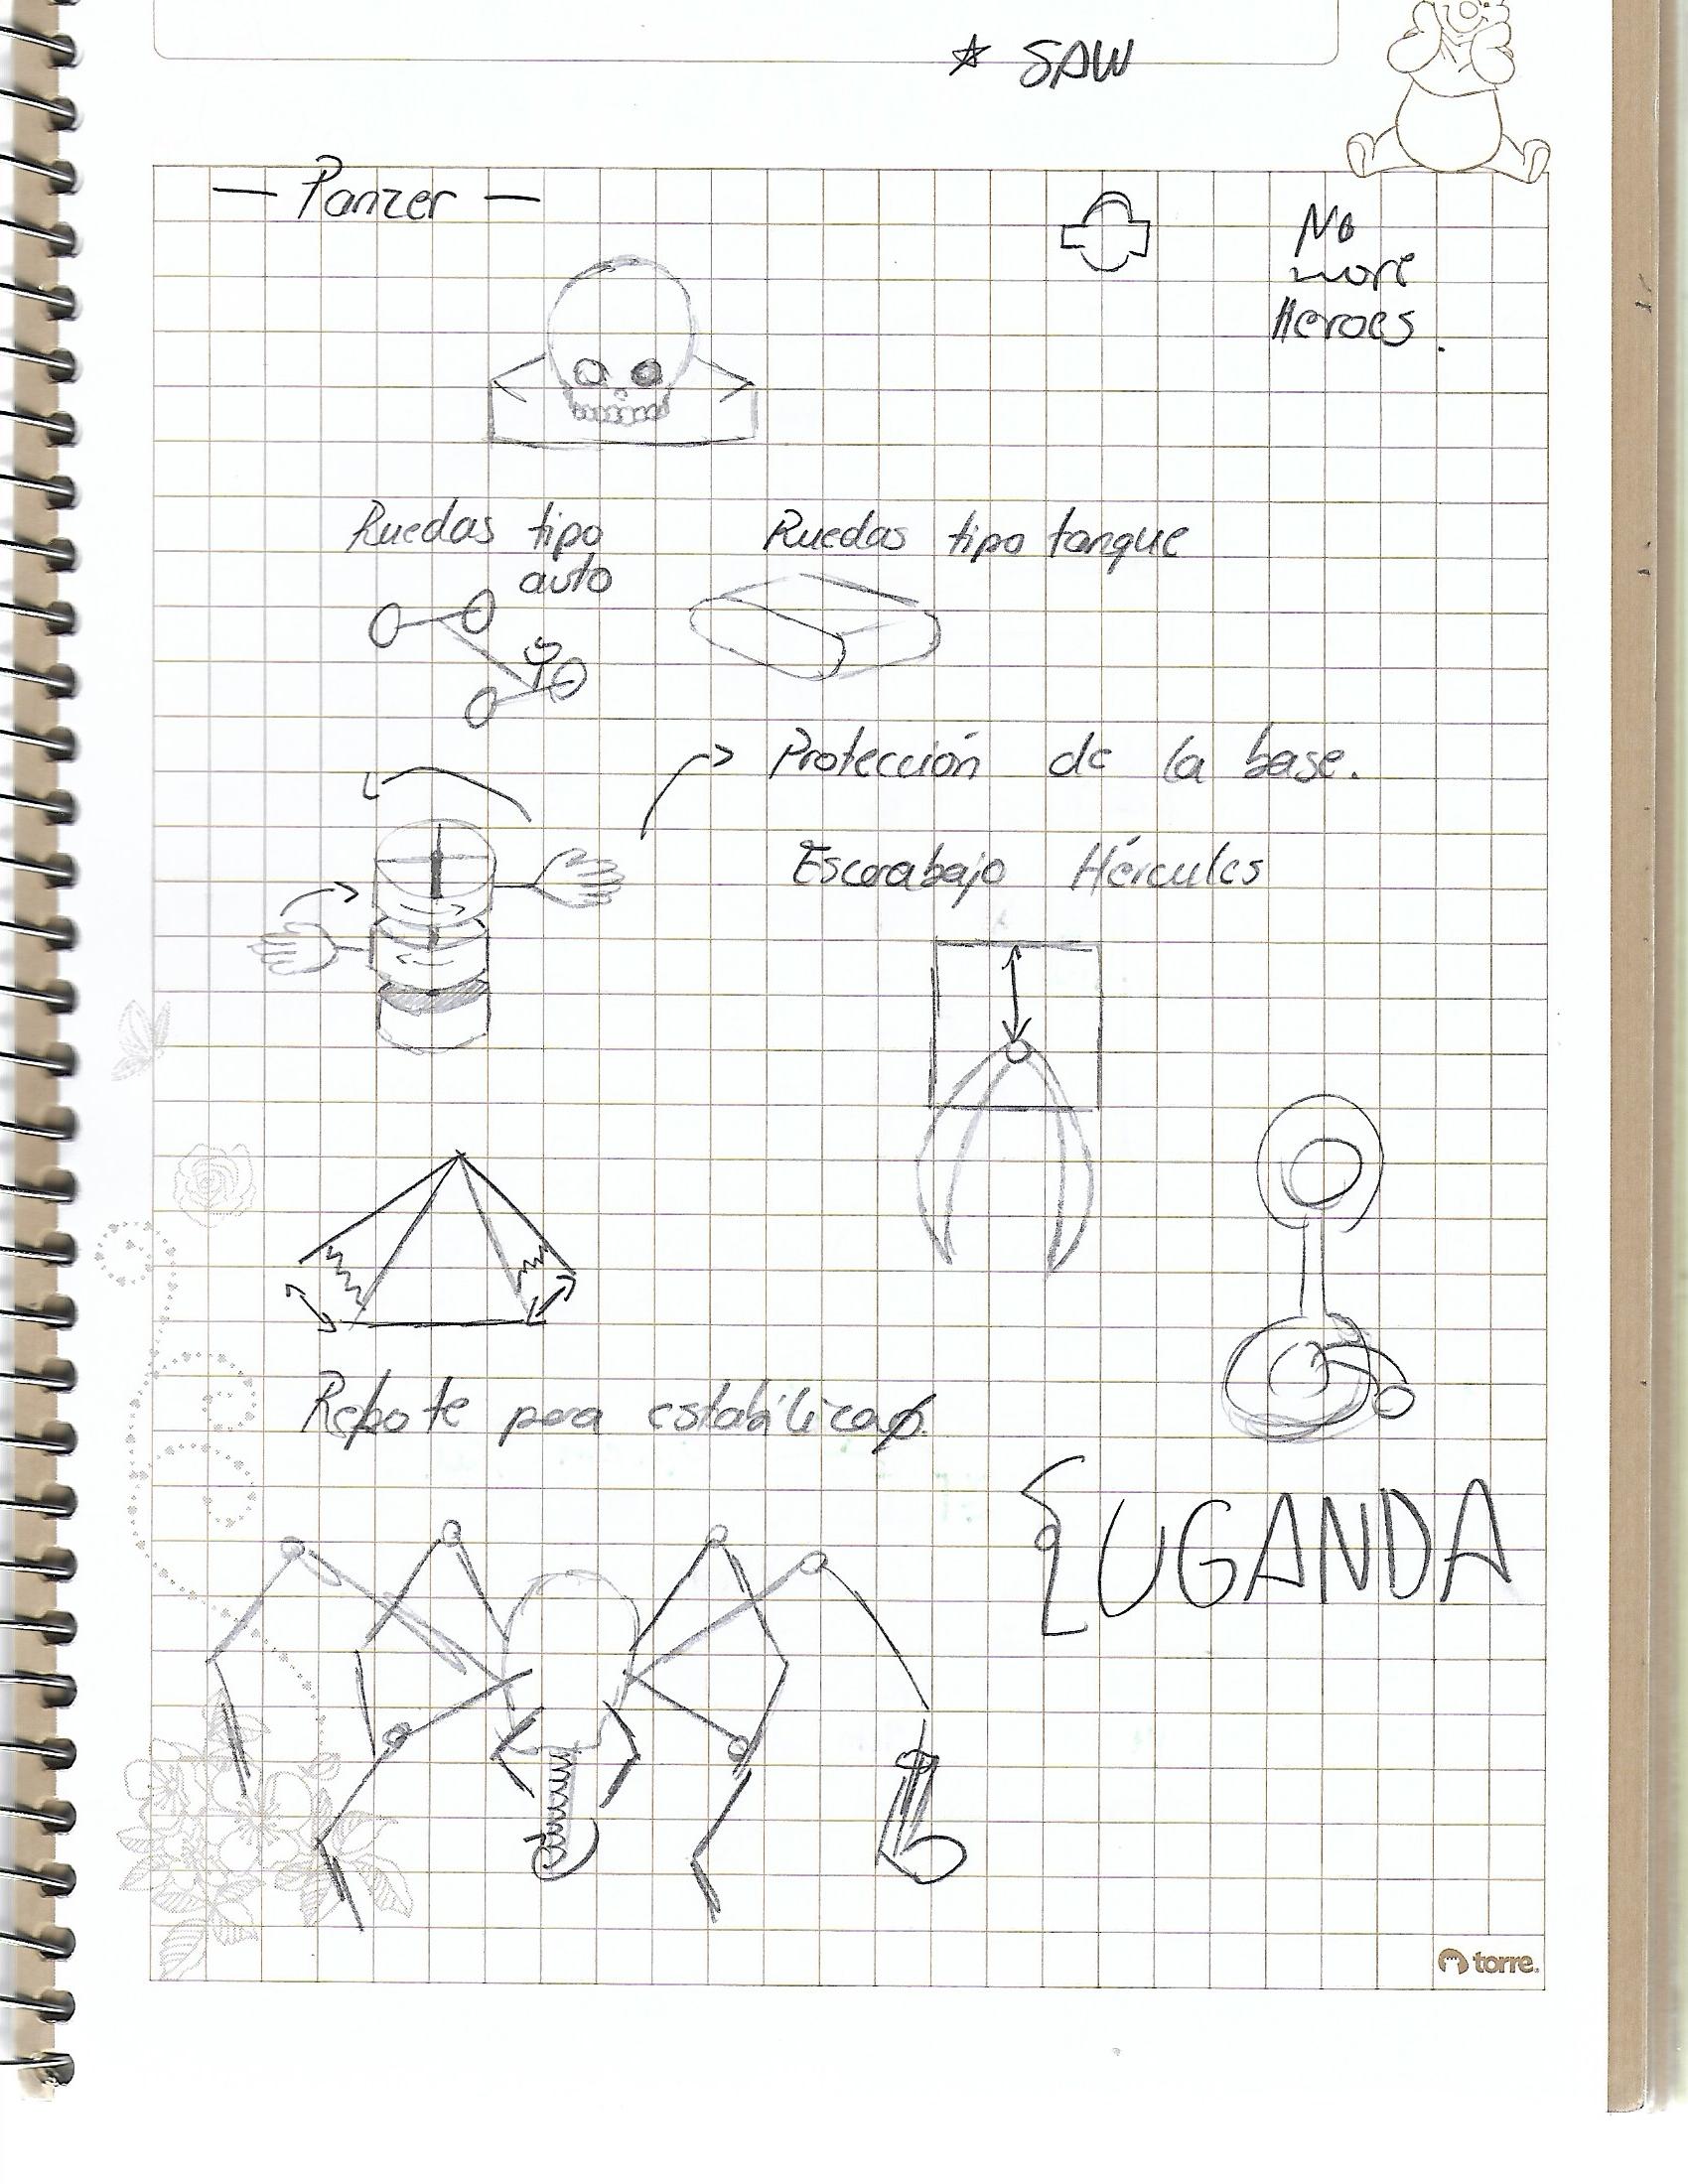 ☆ SAW
— Panzer —
No
more
Heroes.
Ruedas tipo
auto
Ruedas tipo tanque
Protección de la base.
Escarabajo Hércules
Rebote para estabilizar.
UGANDA
torre.